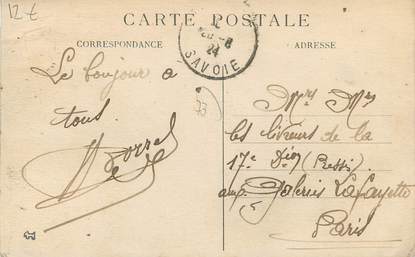 12 €
CARTE POSTALE
CORRESPONDANCE
ADRESSE
24
SAVOIE
Le bonjour a
tous
Borrel
Mrs Mes
les livreurs de la
17e Dion (Ressi)
aux Galeries Lafayette
Paris